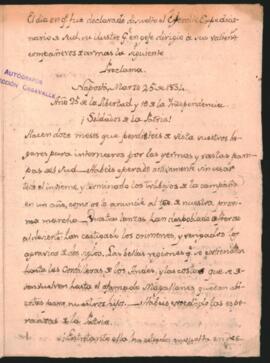 El dia en q. fué declarado disuelto el Ejercito Expedicio-
nario al Sud, su ilustre G.l en gefe dirigio a sus valientes
compañeros de armas la siguiente
Proclama.
AUTOGRAFOS
CCIÓN CASAVALLE
Napostá, Marzo 25 de 1834.
Año 25 de la Libertad, y 19 de la Independencia
¡Soldados de la Patria!
Hacen doce meses que perdisteis de vista vuestros ho-
gares para internaros por las yermas y vastas pam-
pas del Sud. Habeis operado activamente sin cesar
todo el invierno, y terminado los trabajos de la campaña
en un año, como os lo anuncié al de nuestra
marcha. Vuestras lanzas han despoblado de fieras
el desierto, han castigado los crimenes, y vengado los
agravios de dos siglos. Las bellas regiones q. se extienden
hasta las Cordilleras de los Andes, y las costas que se de-
senvuelven hasta el afamado Magallanes quedan abi-
ertas para nuestros hijos. Habeis excedido las espe-
ranzas de la Patria.
Entretanto ella ha estado envuelta en des-